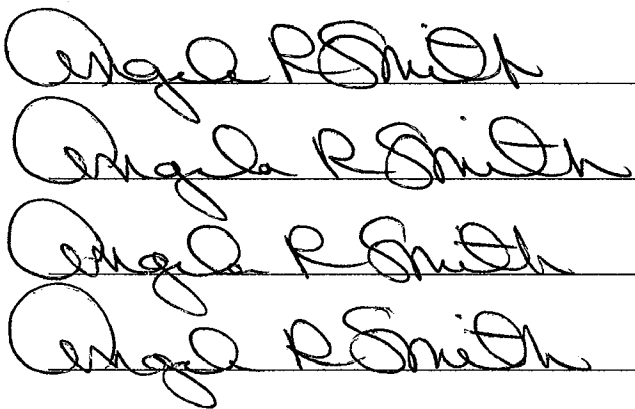 Angela R Smith
Angela R Smith
Angela R Smith
Angela R Smith